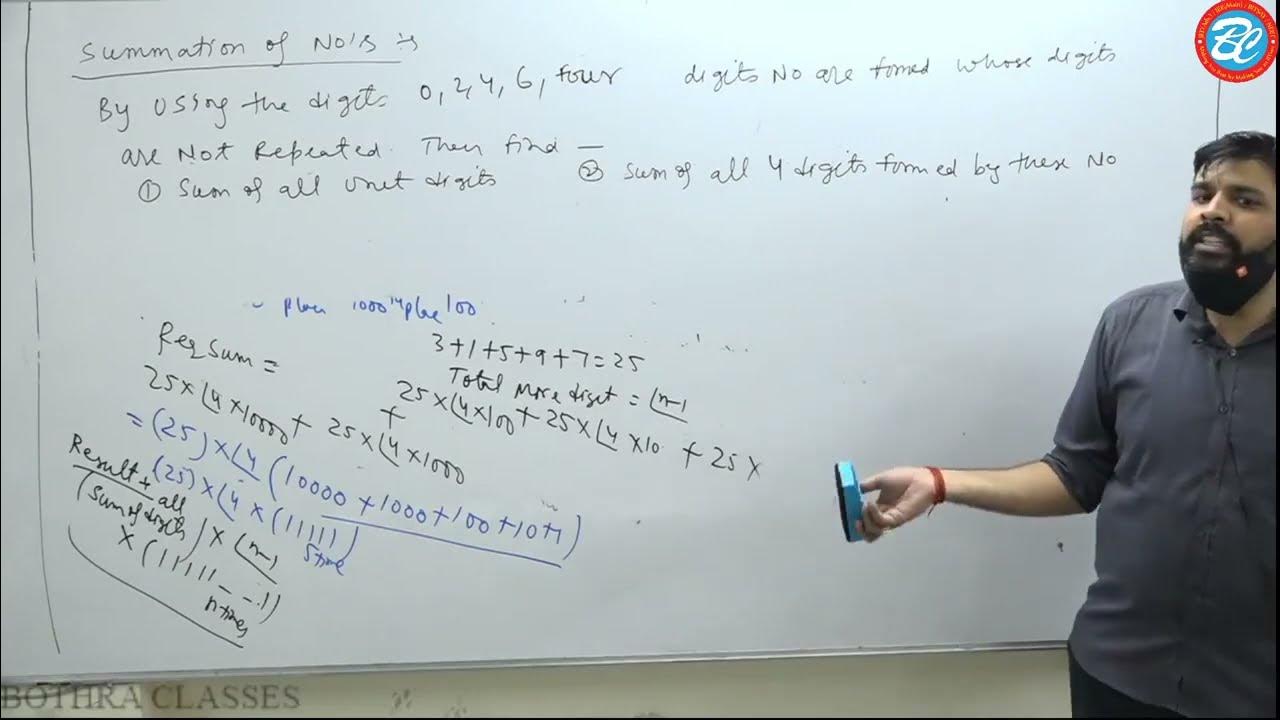 Summation of No's is
By Using the digits 0, 2, 4, 6, four digits No are formed whose digits
are Not Repeated. Then find —
① Sum of all Unit digits ② Sum of all 4 digits formed by these No
place 1000 place 100
Req Sum =
3+1+5+9+7=25
Total More digit = ⌊n-1
25×⌊4×10000+ 25×⌊4×1000
+ 25×⌊4×100+ 25×⌊4×10 + 25×
= (25)×⌊4 (10000+1000+100+10+1)
(25)×⌊4×(11111)
5 time
Result +
(Sum of all digits) × ⌊n-1
× (11111 - - .1)
n times
BC
BOTHRA CLASSES